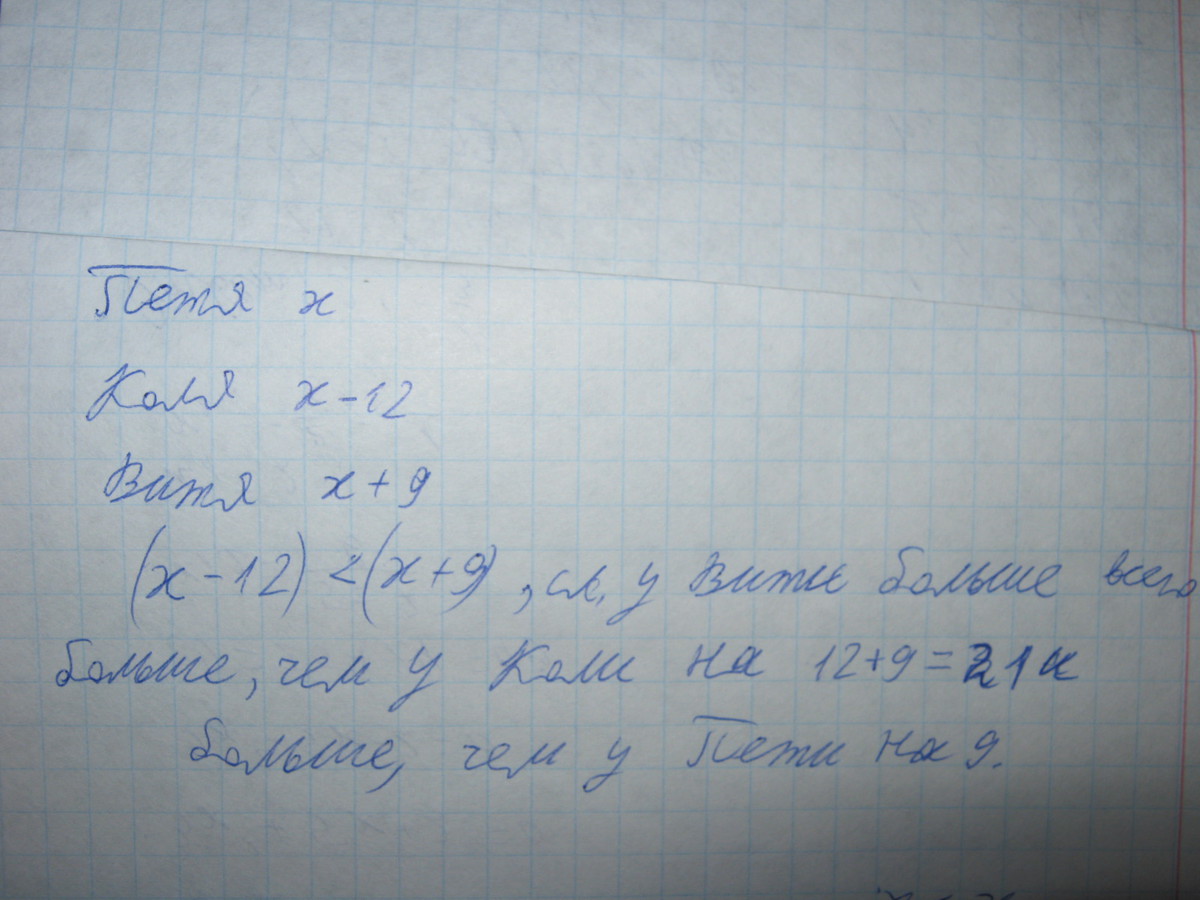 Петя x
Коля x-12
Витя x+9
(x-12) < (x+9), сл, у Вити больше всего
больше, чем у Коли на 12+9=21 и
больше, чем у Пети на 9.